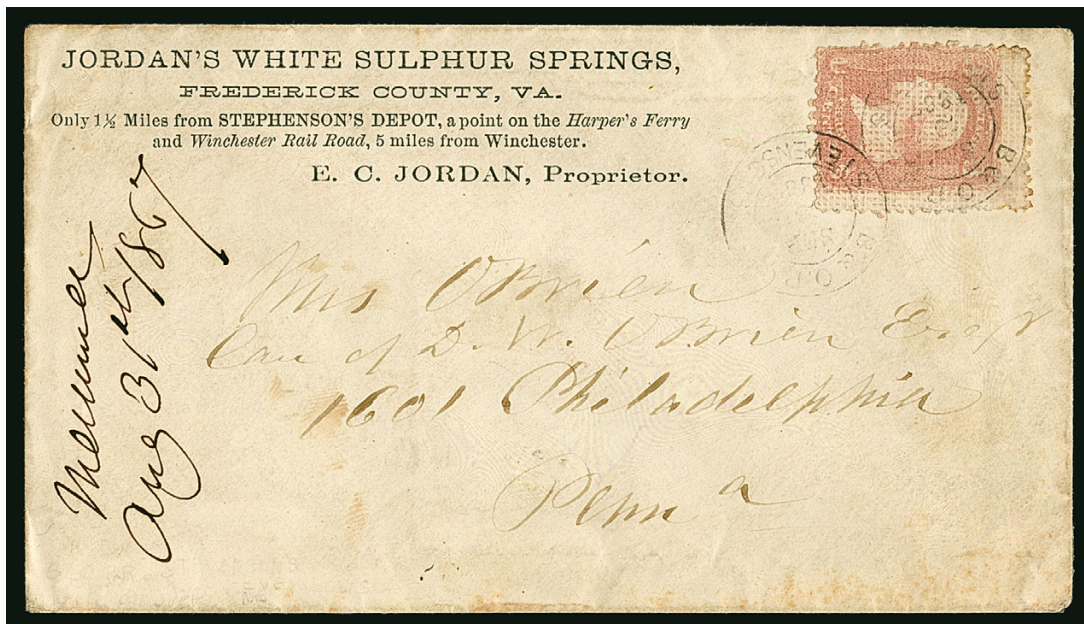 JORDAN'S WHITE SULPHUR SPRINGS,
FREDERICK COUNTY, VA.
Only 1½ Miles from STEPHENSON'S DEPOT, a point on the Harper's Ferry
and Winchester Rail Road, 5 miles from Winchester.
E. C. JORDAN, Proprietor.
Aug 31st/867
Mrs OBrien
Care of D. W. OBrien Esqr
1601 Philadelphia
Penna